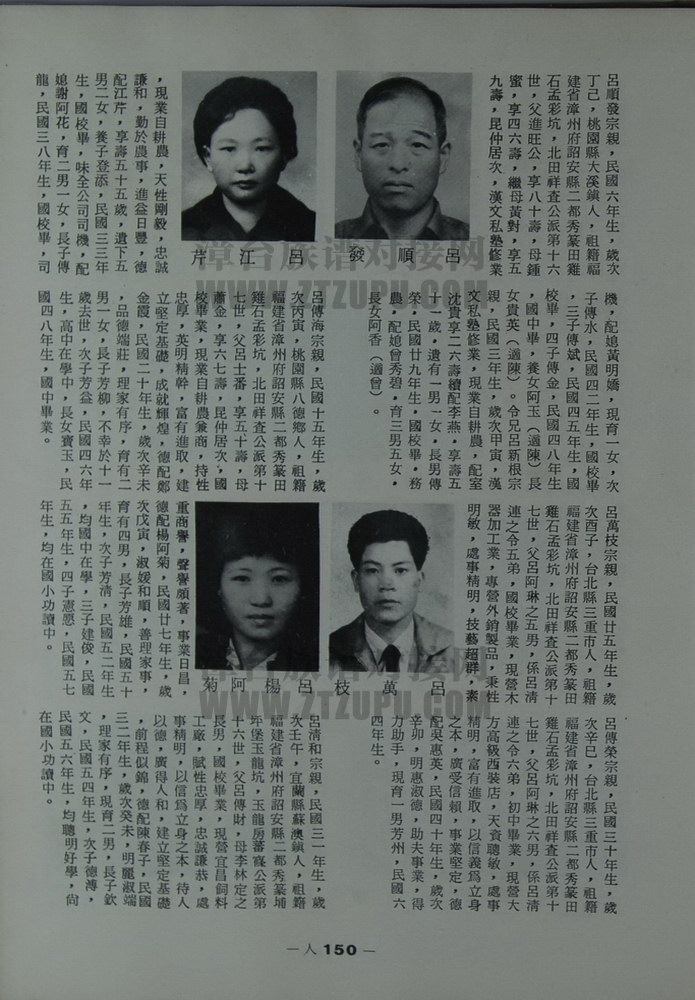 呂順發宗親，民國六年生，歲次
丁己，桃園縣大溪鎮人，祖籍福
建省漳州府詔安縣二都秀篆田雞
石孟彩坑，北田祥查公派第十六
世，父進旺公，享八十壽，母鍾
蜜，享四六壽，繼母黃對，享五
九壽，昆仲居次，漢文私塾修業
呂順發
呂江芹
，現業自耕農，天性剛毅，忠誠
謙和，勤於農事，進益日豐，德
配江芹，享壽五十五歲，遺下五
男二女，養子登添，民國三三年
生，國校畢，味全公司司機，配
媳謝阿花，育二男一女，長子傳
龍，民國三八年生，國校畢，司
機，配媳黃明嬌，現育一女，次
子傳水，民國四二年生，國校畢
，三子傳斌，民國四五年生，國
校畢，四子傳金，民國四八年生
，國中畢，養女阿玉（適陳）長
女貴英（適陳）。令兄呂新根宗
親，民國三年生，歲次甲寅，漢
文私塾修業，現業自耕農，配室
沈貴享二六壽續配李燕，享壽五
十一歲，遺有一男一女，長男傳
榮，民國廿九年生，國校畢，務
農，配媳曾秀碧，育三男五女，
長女阿香（適曾）。
呂傳海宗親，民國十五年生，歲
次丙寅，桃園縣八德鄉人，祖籍
福建省漳州府詔安縣二都秀篆田
雞石孟彩坑，北田祥查公派第十
七世，父呂士番，享五十壽，母
蕭金，享六七壽，昆仲居次，國
校畢業，現業自耕農兼商，持性
忠厚，英明精幹，富有進取，建
立堅定基礎，成就輝煌，德配鄭
金霞，民國二十年生，歲次辛未
，品德端莊，理家有序，育有二
男一女，長子芳柳，不幸於十一
歲去世，次子芳益，民國四六年
生，高中在學中，長女寶玉，民
國四八年生，國中畢業。
呂萬枝宗親，民國廿五年生，歲
次酉子，台北縣三重市人，祖籍
福建省漳州府詔安縣二都秀篆田
雞石孟彩坑，北田祥查公派第十
七世，父呂阿琳之五男，係呂清
連之令五弟，國校畢業，現營木
器加工業，專營外銷製品，秉性
明敏，處事精明，技藝超群，素
呂萬枝
呂楊阿菊
重商譽，聲譽頗著，事業日昌，
德配楊阿菊，民國廿七年生，歲
次戊寅，淑媛和順，善理家事，
育有四男，長子芳雄，民國五十
年生，次子芳清，民國五二年生
，均國中在學，三子建俊，民國
五五年生，四子憲愿，民國五七
年生，均在國小功讀中。
呂傳榮宗親，民國三十年生，歲
次辛巳，台北縣三重市人，祖籍
福建省漳州府詔安縣二都秀篆田
雞石孟彩坑，北田祥查公派第十
七世，父呂阿琳之六男，係呂清
連之令六弟，初中畢業，現營大
方高級西裝店，天資聰敏，處事
精明，富有進取，以信義爲立身
之本，廣受信賴，事業堅定，德
配吳惠英，民國四十年生，歲次
辛卯，明惠淑德，助夫事業，得
力助手，現育一男芳州，民國六
四年生。
呂清和宗親，民國三一年生，歲
次壬午，宜蘭縣蘇澳鎮人，祖籍
福建省漳州府詔安縣二都秀篆埔
坪堡玉龍坑，玉龍房蕃寬公派第
十六世，父呂傳財，母李林定之
長男，國校畢業，現營宜昌飼料
工廠，賦性忠厚，忠誠謙恭，處
事精明，以信爲立身之本，待人
以德，廣得人和，建立堅定基礎
，前程似錦，德配陳春子，民國
三二年生，歲次癸未，明麗淑端
，理家有序，現育二男，長子欽
文，民國五四年生，次子德溥，
民國五六年生，均聰明好學，尚
在國小功讀中。
漳台族谱对接网
WWW.ZTZUPU.COM
漳台族谱对接网
WWW.ZTZUPU.COM
－人150－